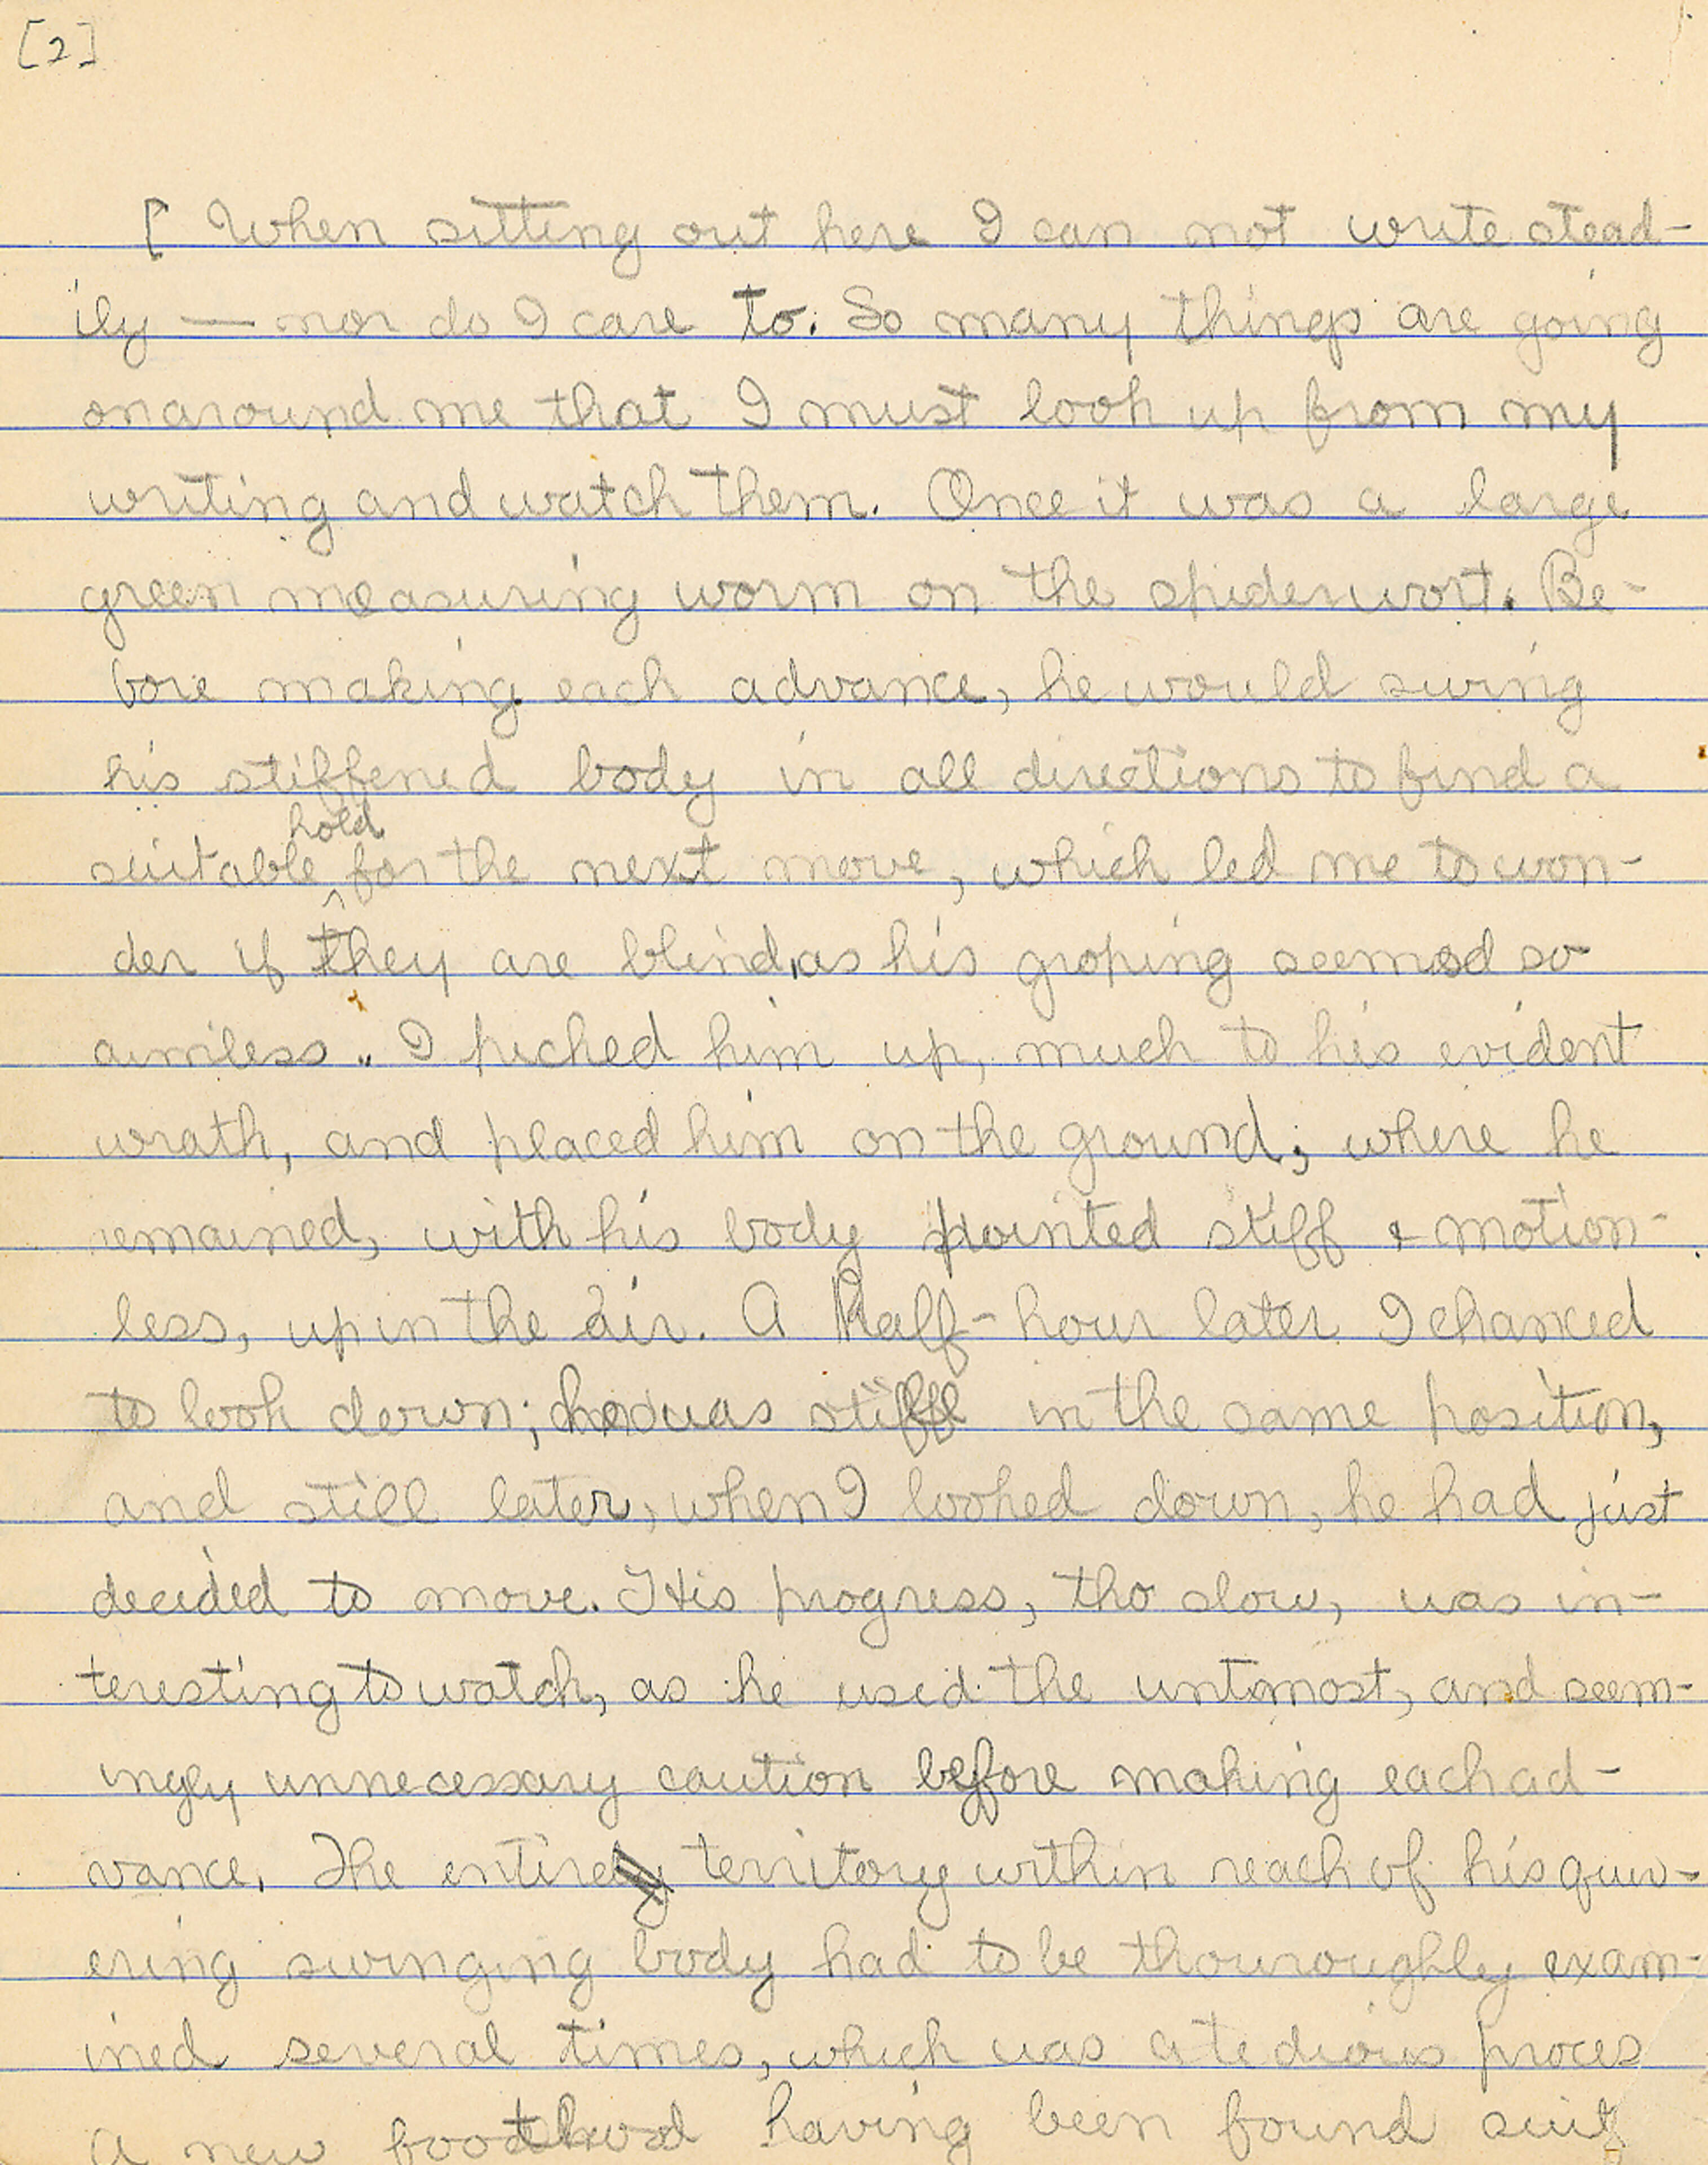 [2]
[ When sitting out here I can not write stead-
ily — nor do I care to. So many things are going
on around me that I must look up from my
writing and watch them. Once it was a large
green measuring worm on the spiderwort. Be-
fore making each advance, he would swing
his stiffened body in all directions to find a
hold
suitable ^ for the next move, which led me to won-
der if they are blind, as his groping seemed so
aimless. I picked him up, much to his evident
wrath, and placed him on the ground; where he
remained, with his body pointed stiff & motion-
less, up in the air. A half-hour later I chanced
to look down; he was still in the same position,
and still later, when I looked down, he had just
decided to move. His progress, tho slow, was in-
teresting to watch, as he used the untmost, and seem-
ingly unnecessary caution before making each ad-
vance. The entire territory within reach of his quiv-
ering swinging body had to be thouroughly exam-
ined several times, which was a tedious proces
A new foothold having been found suit